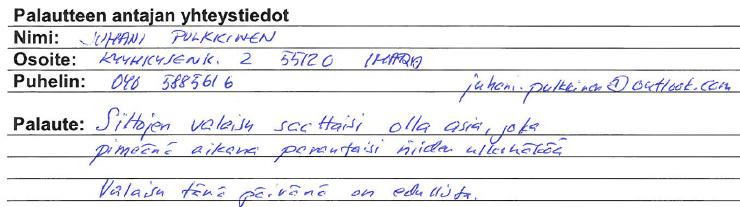 Palautteen antajan yhteystiedot
Nimi: JUHANI PULKKINEN
Osoite: KYYHKYSENK. 2 55120 IMATRA
Puhelin: 040 5885616 juhani.pulkkinen@outlook.com
Palaute: Siltojen valaisu saattaisi olla asia, joka
pimeänä aikana parantaisi niiden ulkonäköä
Valaisu tänä päivänä on edullista.